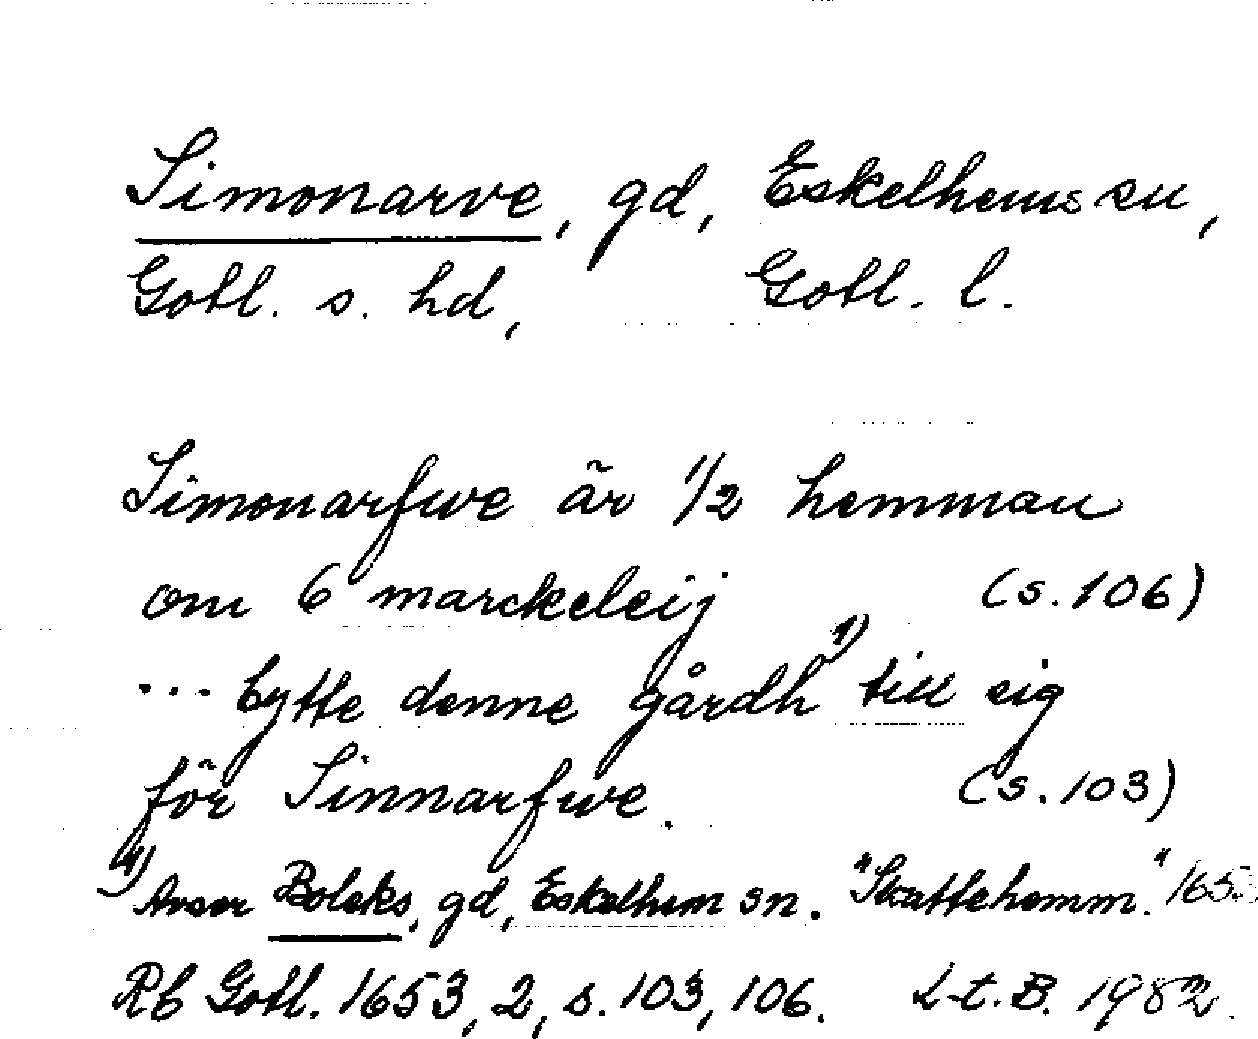 Simonarve, gd, Eskelhems sn,
Gotl. s. hd, Gotl. l.
Simonarfwe är 1/2 hemman
om 6 marckeleij (s. 106)
... bytte denne gårdh 1) till sig
för Sinnarfwe. (s. 103)
1) Avser Boleks, gd, Eskelhem sn. "Skattehemm." 1653.
Rb Gotl. 1653, 2, s. 103, 106. L-t. B. 1982.